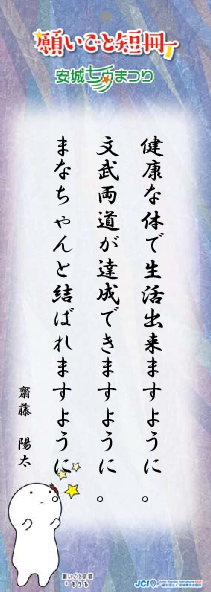 願いごと短冊
安城七夕まつり
健康な体で生活出来ますように。
文武両道が達成できますように。
まなちゃんと結ばれますように。
齋藤 陽太
願いごと短冊
JCI